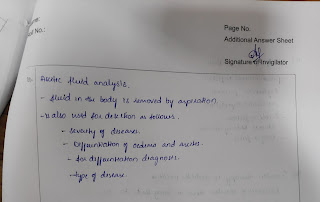 Page No.
Additional Answer Sheet
No.:
Signature of Invigilator
Ascitic fluid analysis.
- fluid in the body is removed by aspiration
- is also used for detection as follows.
- Severity of diseases.
- Differentiation of oedema and ascites.
- for differentiation diagnoses.
- type of disease